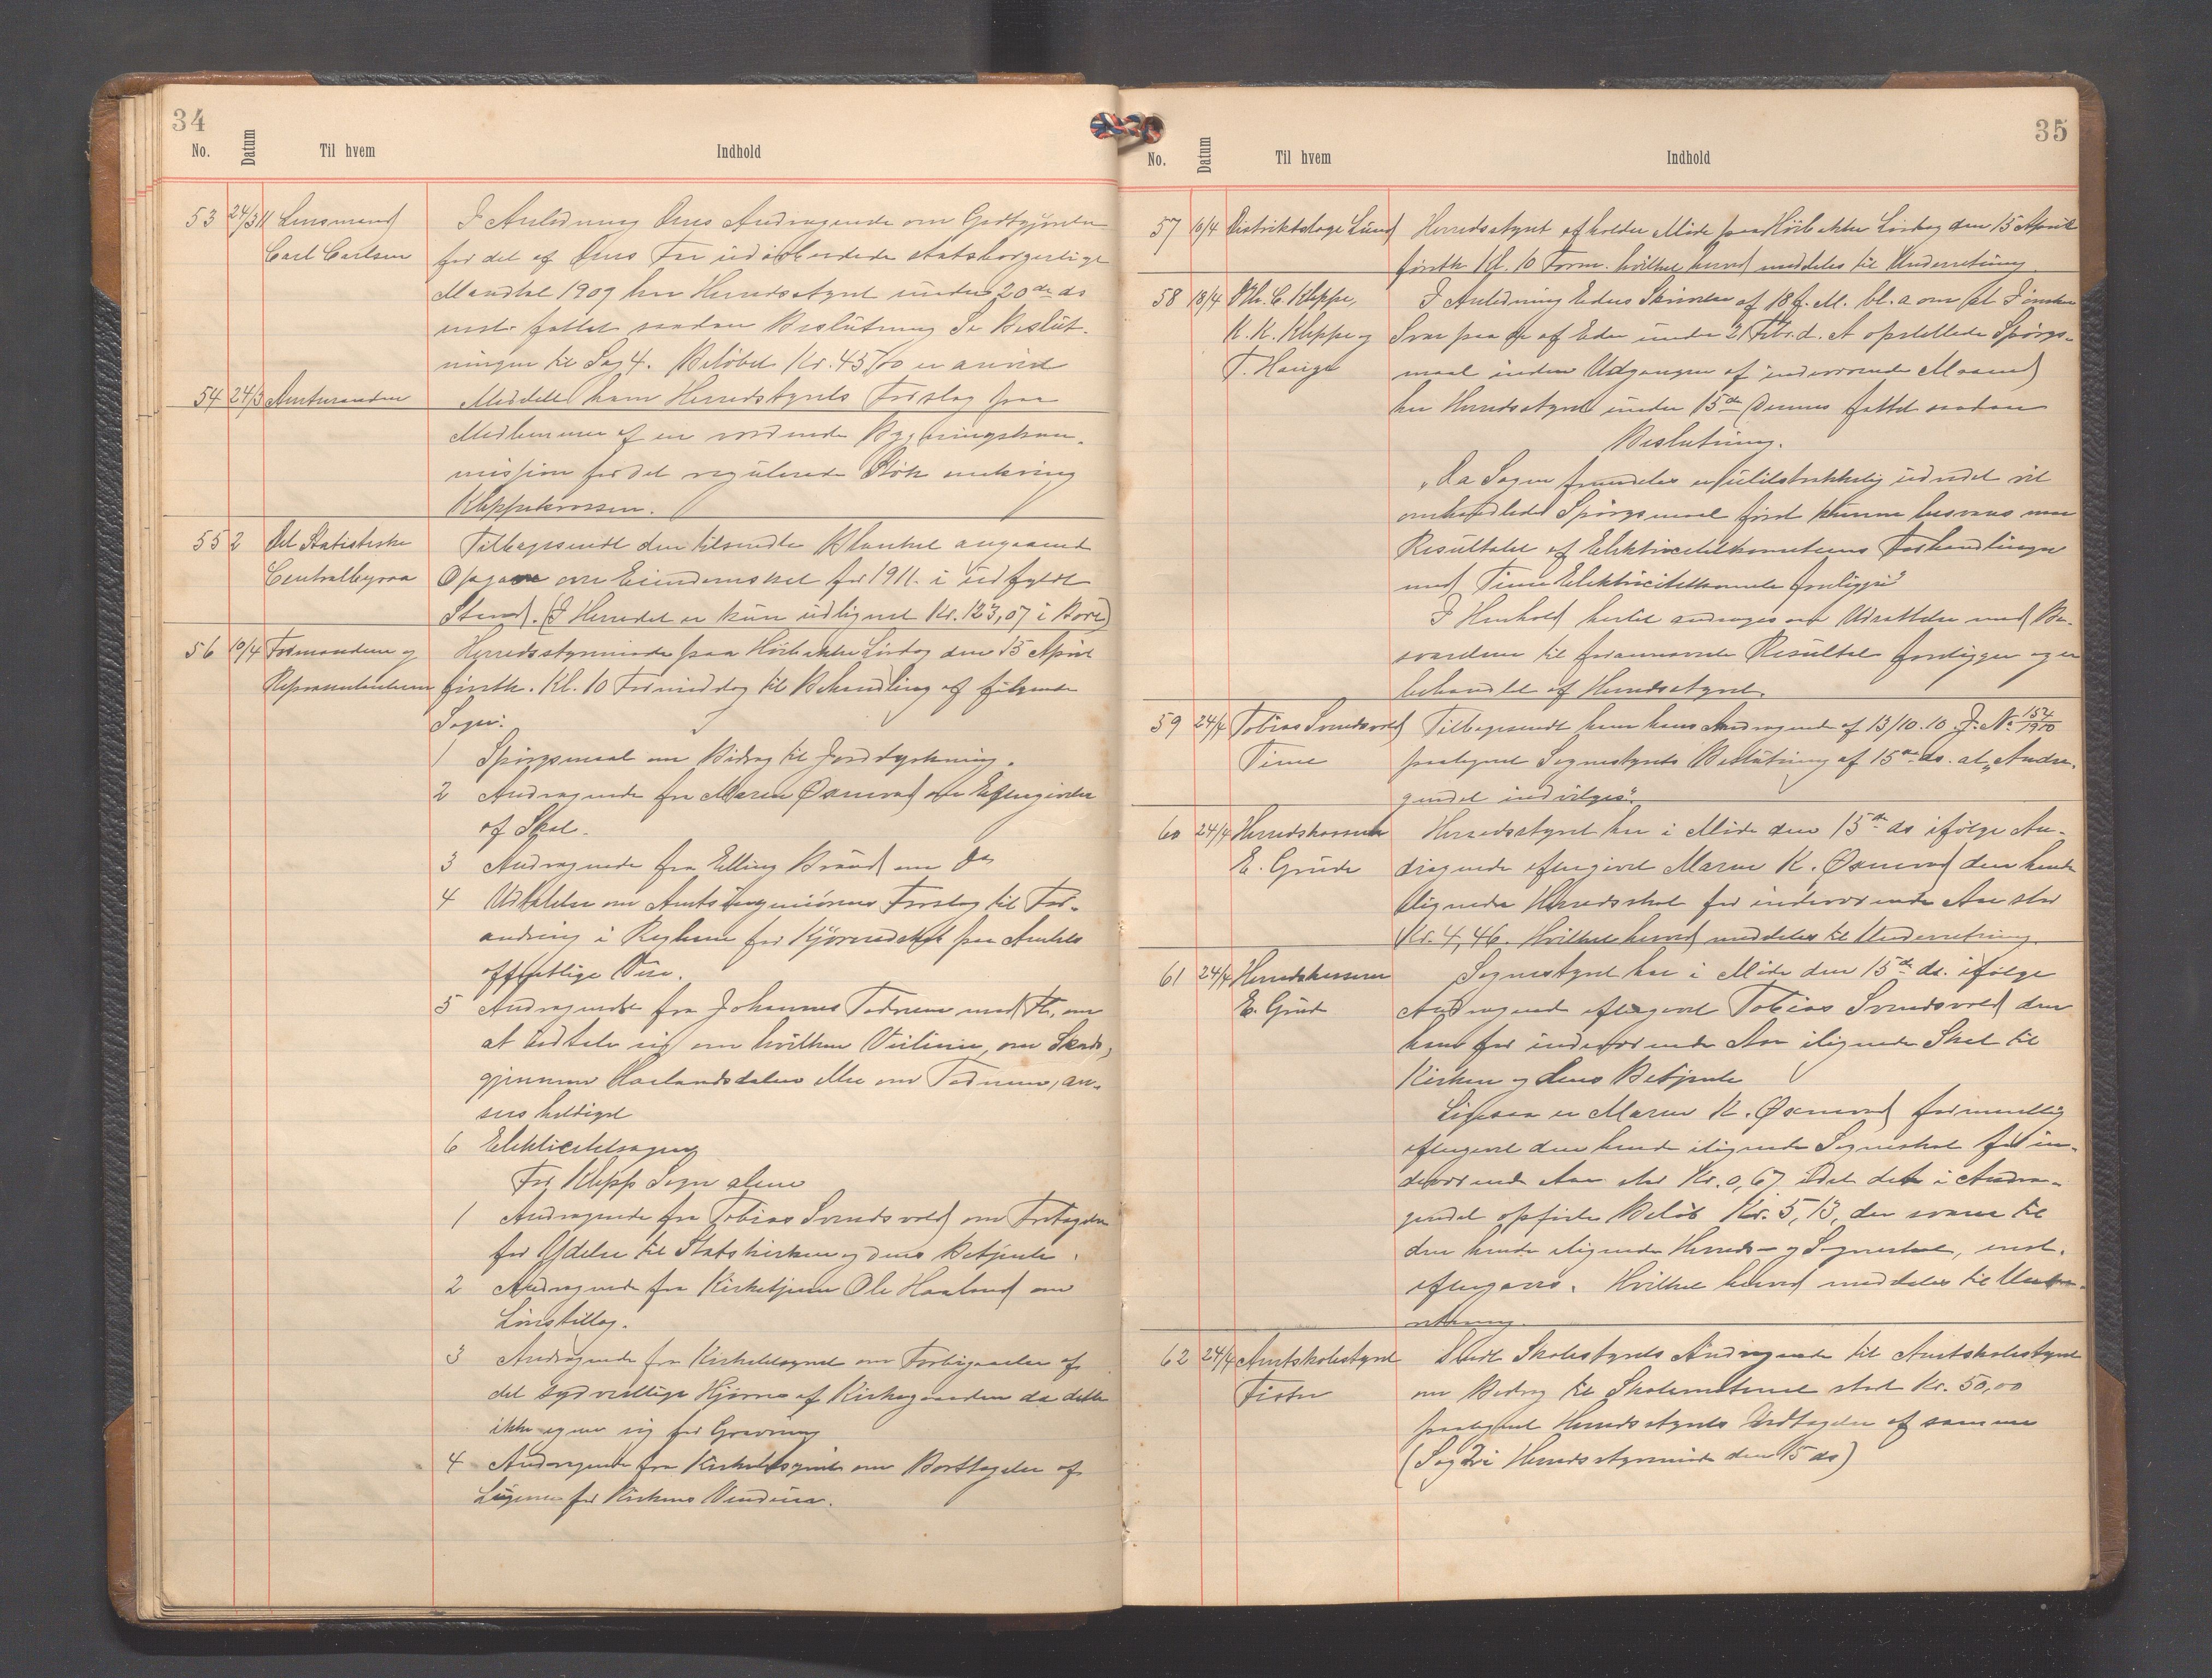 34
No. Datum Til hvem Indhold
53 24/3 11 Lensmand I Anledning Deres Andragende om Godtgjørelse
Carl Carlsen for det af Deres Far udarbeidede statsborgerlige
Mandtal 1909 har Herredsstyret under 20de ds
enst. fattet saadan Beslutning Se Beslut-
ningen til Sag 4. Beløbet Kr. 45,00 er anvist
54 24/3 Amtmanden Meddelt ham Herredstyrets Forslag paa
Medlemmer af en vordende Bygningskom-
mission for det regulerede Strøk omkring
Kleppekrossen.
55 2 Det Statistiske Tilbagesendt den tilsendte Blanket angaaende
Centralbyraa Opgave over Eiendomsskat for 1911. i udfyldt
Stand. (I Herredet er kun udlignet Kr. 123,07 i Bore)
56 10/4 Formændene og Herredsstyremøde paa Hørbakken Lørdag den 15 April
Repræsentanterne førstk. Kl. 10 Formiddag til Behandling af følgende
Sager:
1 Spørgsmaal om Bidrag til Jorddyrkning.
2 Andragende fra Maren Øxnevad om Eftergivelse
af Skat.
3 Andragende fra Elling Braud om Do
4 Udtalelse om Amtsingeniørens Forslag til For-
andring i Reglerne for Kjøreredskab paa Amtets
offentlige Veie.
5 Andragende fra Johannes Todnem med Fl. om
at udtale sig om hvilken Veilinie, om Skads,
gjennem Haalandsdalen eller om Todnem, an-
sees heldigst
6 Elektricitetsagen
For Klepp Sogn alene
1 Andragende fra Tobias Svendsvold om Fritagelse
for Ydelse til Statskirken og dens Betjente.
2 Andragende fra Kirketjener Ole Haaland om
Lønstillæg.
3 Andragende fra Kirketilsynet om Forbigaaelse af
det sydvestlige Hjørne af Kirkegaarden da dette
ikke egner sig for Gravning
4 Andragende fra Kirketilsynet om Borttagelse af
Lugerne for Kirkens Vinduer.
35
No. Datum Til hvem Indhold
57 10/4 Distriktslæge Lund Herredsstyret afholder Møde paa Hørbakken Lørdag den 15 April
førstk Kl. 10 Form. hvilket herved meddeles til Underretning
58 18/4 Kr. C. Kleppe, I Anledning Eders Skrivelse af 18 f. M. bl. a om at I ønsker
K. K. Kleppe og Svar paa de af Eder under 21 Febr. d. A opstillede Spørgs-
T. Hauge maal inden Udgangen af indeværende Maaned
har Herredsstyret under 15de Dennes fattet saadan
Beslutning.
"Da Sagen fremdeles er utilstrækkelig udredet vil
omhandlede Spørgsmaal først kunne besvares naar
Resultatet af Elektricitetskomiteens Forhandlinger
med Time Elektricitetskomite foreligger"
I Henhold hertil andrages om Udsættelse med Be-
svarelsen til forannævnte Resultat foreligger og er
behandlet af Herredsstyret.
59 24/4 Tobias Svendsvold Tilbagesendt ham hans Andragende af 13/10.10 J. No 154/1910
Time paategnet Sognestyrets Beslutning af 15de ds. at "Andra-
gendet indvilges".
60 24/4 Herredskasserer Herredsstyret har i Møde den 15de ds ifølge An-
E. Grude dragende eftergivet Maren K. Øxnevad den hende
ilignede Herredsskat for indeværende Aar stor
Kr. 4,46. Hvilket herved meddeles til Underretning.
61 24/4 Herredskasserer Sognestyret har i Møde den 15de ds. ifølge
E. Grude Andragende eftergivet Tobias Svendsvold den
ham for indeværende Aar ilignede Skat til
Kirken og dens Betjente
Ligesaa er Maren K. Øxnevad forinentlig
eftergivet den hende ilignede Sogneskat for in-
deværende Aar stor Kr. 0,67 idet det i Andra-
gendet opførte Beløb Kr. 5,13, der svarer til
den hende ilignede Herreds- og Sogneskat, enst.
eftergaves. Hvilket herved meddeles til Under-
retning.
62 24/4 Amtskolestyret Sendt Skolestyrets Andragende til Amtskolestyret
Fister om Bidrag til Skolemateriel stort Kr. 50,00
paategnet Herredsstyrets Vedtagelse af samme
(Sag 2 i Herredsstyremøde den 15 ds)